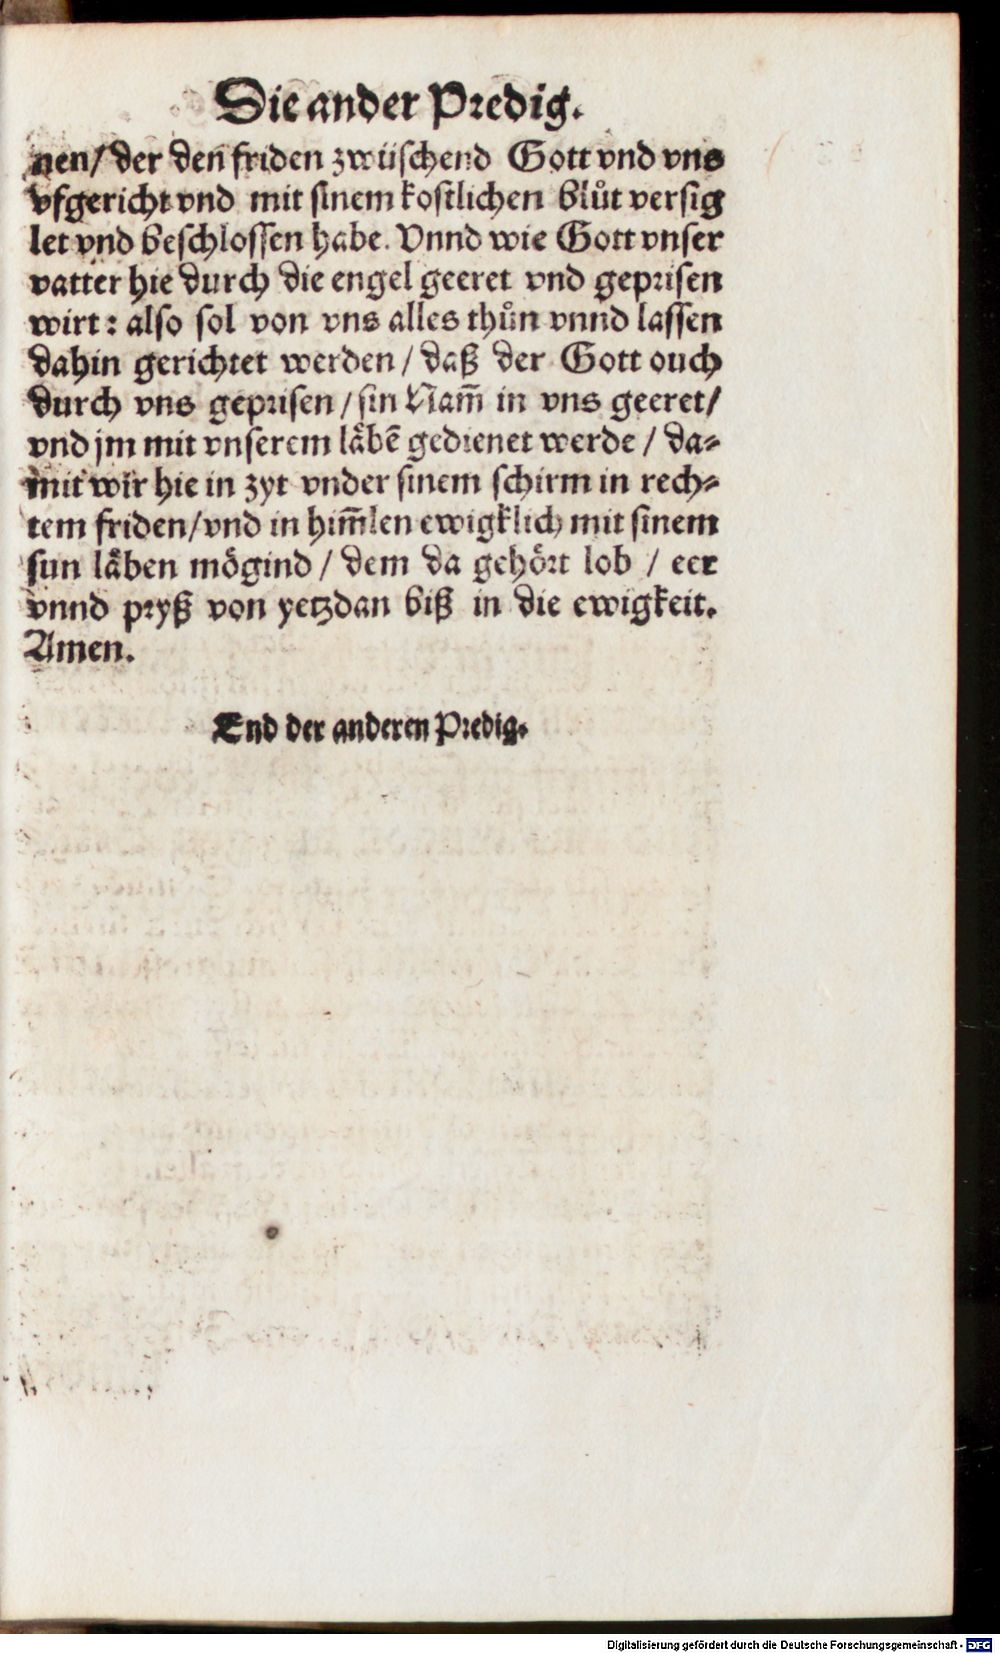 Die ander Predig.
nen/ der den friden zwüschend Gott vnd vns
vfgericht vnd mit sinem kostlichen blůt versig
let vnd beschlossen habe. Vnnd wie Gott vnser
vatter hie durch die engel geeret vnd geprisen
wirt: also sol von vns alles thůn vnnd lassen
dahin gerichtet werden / daß der Gott ouch
durch vns geprisen / sin Nam̃ in vns geeret/
vnd jm mit vnserem låbē gedienet werde / da-
mit wir hie in zyt vnder sinem schirm in rech-
tem friden/ vnd in him̃len ewigklich mit sinem
sun låben mögind / dem da gehört lob / eer
vnnd pryß von yetzdan biß in die ewigkeit.
Amen.
End der anderen Predig.
Digitalisierung gefördert durch die Deutsche Forschungsgemeinschaft - DFG